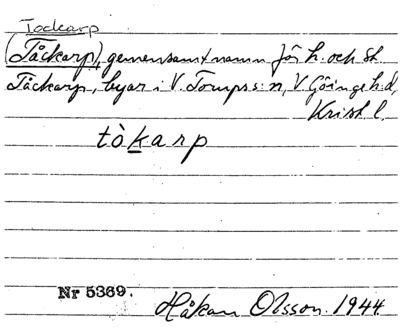 Tockarp
(Tåckarp), gemensamt namn för h. och St.
Tåckarp, byar i V. Torups s:n, V. Göinge h:d,
Krist. l.
tòkarp
Nr 5369.
Håkan Olsson. 1944.